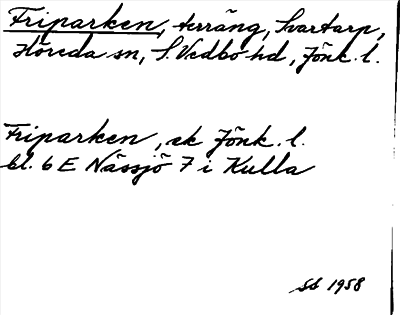 Friparken, terräng, Svartarp,
Höreda sn, S. Vedbo hd, Jönk. l.
Friparken, ek Jönk. l.
bl. 6 E Nässjö 7 i Kulla
SS 1958